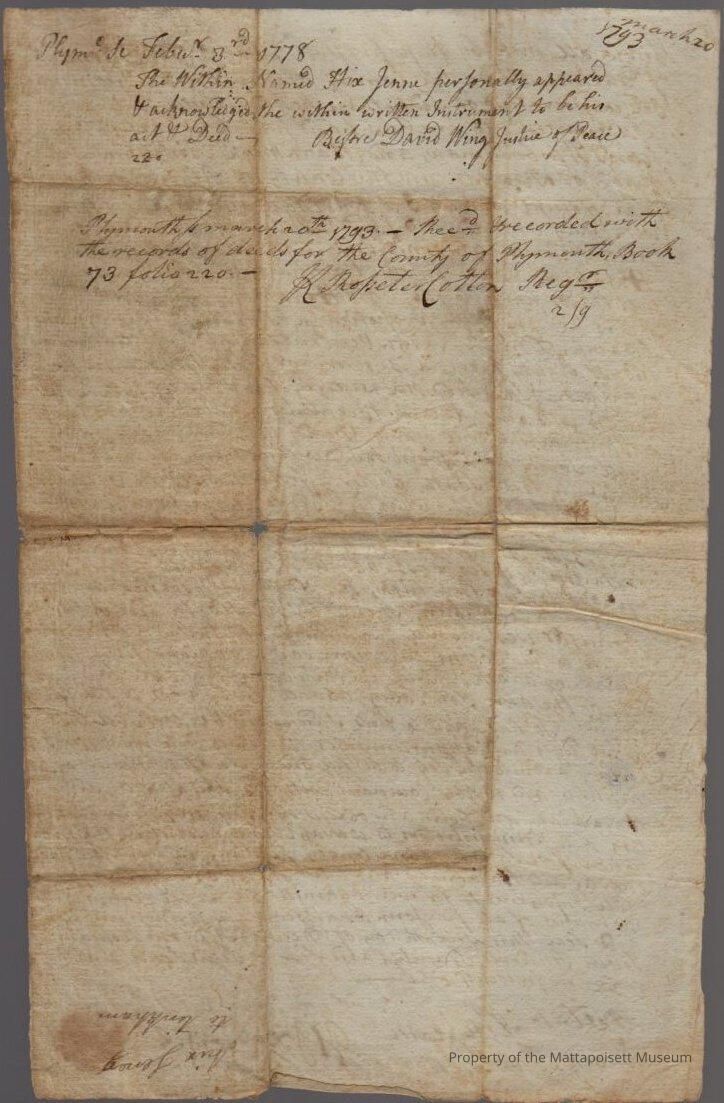 march 20
1793
Plymo. ss Febur. 3rd 1778
The Within Named Hix Jenne personally appeared
& acknowledged the within written Instrument to be his
act & Deed —
Before David Wing Justice of Peace
220
Plymouth ss march 20th 1793. — Recd & recorded with
the records of deeds for the County of Plymouth, Book
73 folio 220. —
Rosseter Cotton Regr
2/9
Hix Jenney
to Tinkham
Property of the Mattapoisett Museum